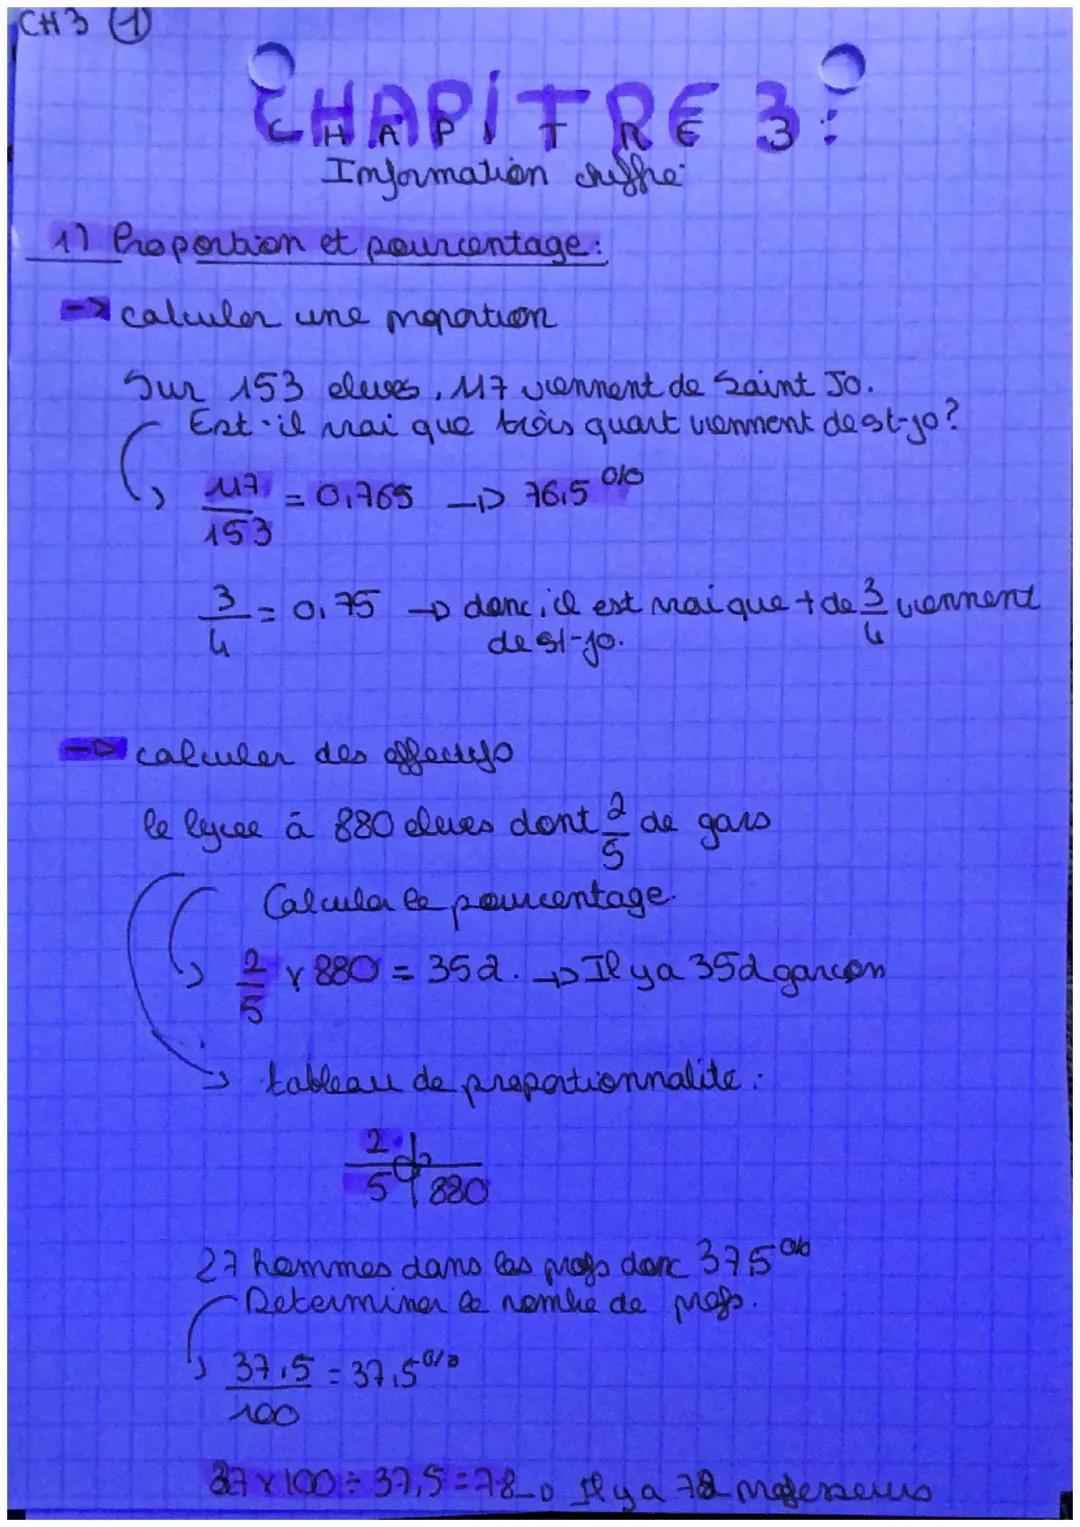 CH3 ①
CHAPITRE 3:
CHAPITRE 3
Information chiffre
1) Proportion et pourcentage:
-> calculer une proportion
Sur 153 eleves, 117 viennent de Saint Jo.
Est-il vrai que trois quart viennent de st-jo?
117/153 = 0,765 -> 76,5 %
3/4 = 0,75 -> donc, il est vrai que + de 3/4 viennent
de st-jo.
-> calculer des effectifs
le lycee à 880 eleves dont 2/5 de gars
Calculer le pourcentage.
2/5 x 880 = 352. -> Il y a 352 garcon
-> tableau de proportionnalite:
2
5 | 880
27 hommes dans les profs donc 37,5 %
Determiner le nombre de profs.
37,5/100 = 37,5 %
x 100 ÷ 37,5 = 78 -> Il y a 78 professeurs